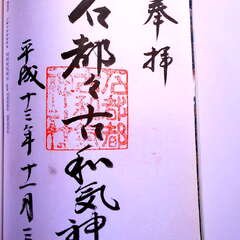 奉拝
石都々古和気神
平成十三年十一月三